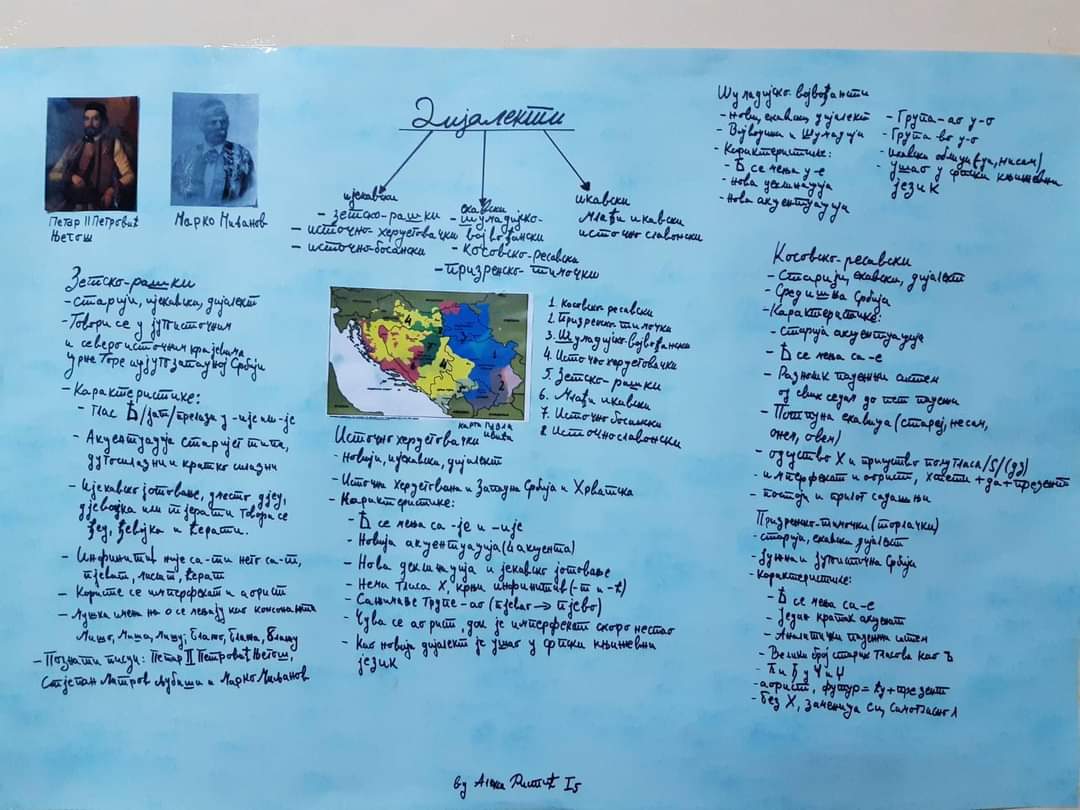 Дијалекти
ијекавски
- зетско-рашки
- источно-херцеговачки
- источно-босански
екавски
- шумадијско-
војвођански
- косовско-ресавски
- призренско-тимочки
икавски
млађи икавски
источно славонски
Петар II Петровић
Његош
Марко Миљанов
Зетско-рашки
- Старији, ијекавски, дијалект
- Говори се у југоисточним
и североисточним крајевима
Црне Горе и југозападној Србији
- Карактеристике:
- Глас Ѣ/јат/прелази у -ије или -је
- Акцентуација старијег типа,
дугосилазни и кратко силазни
- Ијекавско јотовање, уместо дјед,
дјевојка или тјерати говори се
ђед, ђевојка и ћерати.
- Инфинитив није са -ти него са -т,
пјеват, писат, ћерат
- Користе се имперфекат и аорист
- Мушка имена на о се мењају као
Мишо, Миша, Мишу, Блажо, Блажа, Блажу
- Познати писци: Петар II Петровић Његош,
Стјепан Митров Љубиша и Марко Миљанов
1. Косовско ресавски
2. Призренско тимочки
3. Шумадијско-војвођански
4. Источно херцеговачки
5. Зетско-рашки
6. Млађи икавски
7. Источно босански
8. Источнославонски
карта Павла
Ивића
Источно херцеговачки
- Новији, ијекавски, дијалект
- Источна Херцеговина и Западна Србија и Хрватска
- Карактеристике:
- Ѣ се мења са -је и -ије
- Новија акцентуација (4 акцента)
- Нова деклинација и јекавско јотовање
- Нема гласа Х, крњи инфинитив (-т и -ћ)
- Сажимање групе -ао (пјевао → пјево)
- Чува се аорист, док је имперфекат скоро нестао
- Као новији дијалект је ушао у српски књижевни
језик
Шумадијско војвођански
- Нови, екавски, дијалект
- Војводина и Шумадија
- Карактеристике:
- Ѣ се мења у -е
- нова деклинација
- нова акцентуација
- Група -ао у -о
- Група -во у -о
- икавски облици (, нисам)
- ушао у српски књижевни
језик
Косовско-ресавски
- Старији, екавски, дијалект
- Средишња Србија
- Карактеристике:
- старија акцентуација
- Ѣ се мења са -е
- Различит падежни систем
од свих седам до пет падежа
- Потпуна екавица (стареј, несам,
онем, овем)
- одсуство Х и присуство полугласа /Ѕ/ (дз)
- имперфекат и аорист, хтети + да + презент
- постоји и прилог садашњи
Призренско-тимочки (торлачки)
- старији, екавски дијалект
- Јужна и Југоисточна Србија
- Карактеристике:
- Ѣ се мења са -е
- Један кратак акценат
- Аналитички падежни систем
- Велики број старих гласова као Ъ
- Ћ и Ђ у Ч и Џ
- аорист, футур = ћу + презент
- без Х, замењује се самогласно л
by Алекса Ритић I5